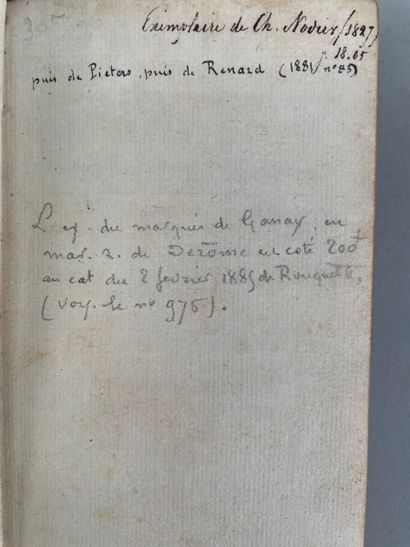 Exemplaire de Ch. Nodier (1827)
18.05
puis de Pieters, puis de Renard (1881 n° 85)
L'ex. du marquis de Ganay, en
mar. r. de Derome est coté 200
au cat du 2 fevrier 1885 de Rouquette
(voy. le n° 975).